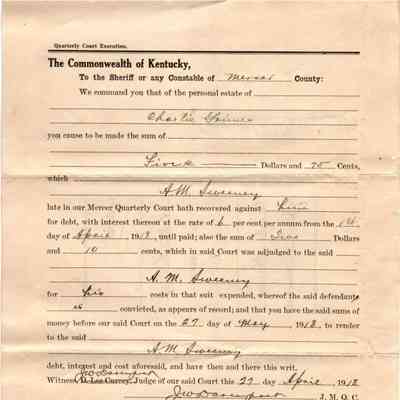 Quarterly Court Execution.
The Commonwealth of Kentucky,
To the Sheriff or any Constable of Mercer County:
We command you that of the personal estate of
Charlie
you cause to be made the sum of
Dollars and 75 Cents,
which
A. M. Sweeney
late in our Mercer Quarterly Court hath recovered against him
for debt, with interest thereon at the rate of 6 per cent per annum from the 1st
day of April 1912, until paid; also the sum of Two Dollars
and 10 cents, which in said Court was adjudged to the said
A. M. Sweeney
for his costs in that suit expended, whereof the said defendant
is convicted, as appears of record; and that you have the said sums of
money before our said Court on the 27 day of May 1912 to render
to the said
A M. Sweeney
debt, interest and cost aforesaid, and have then and there this writ.
Witness, D. Lee Currey, Judge of our said Court this 27 day April 1912
J. M. Q. C.